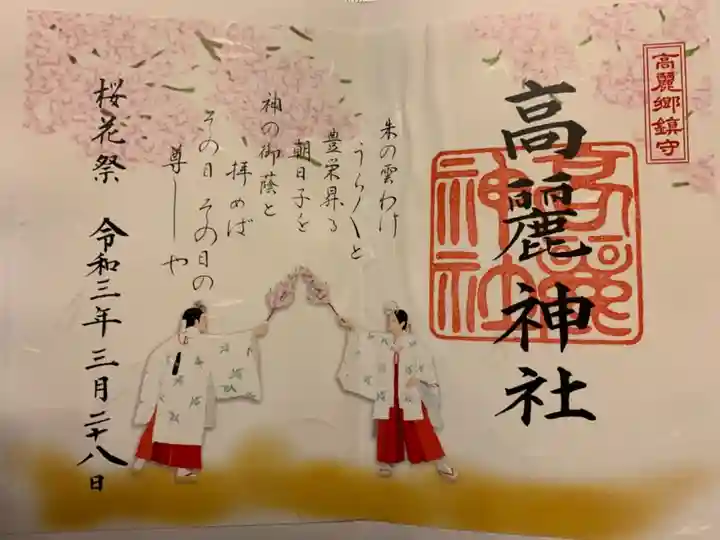 高麗郷鎮守
高麗神社
高麗神社
朱の雲わけ
うらうらと
豊栄昇る
朝日子を
神の御蔭と
拝めば
その日その日の
尊しや
桜花祭 令和三年三月二十八日